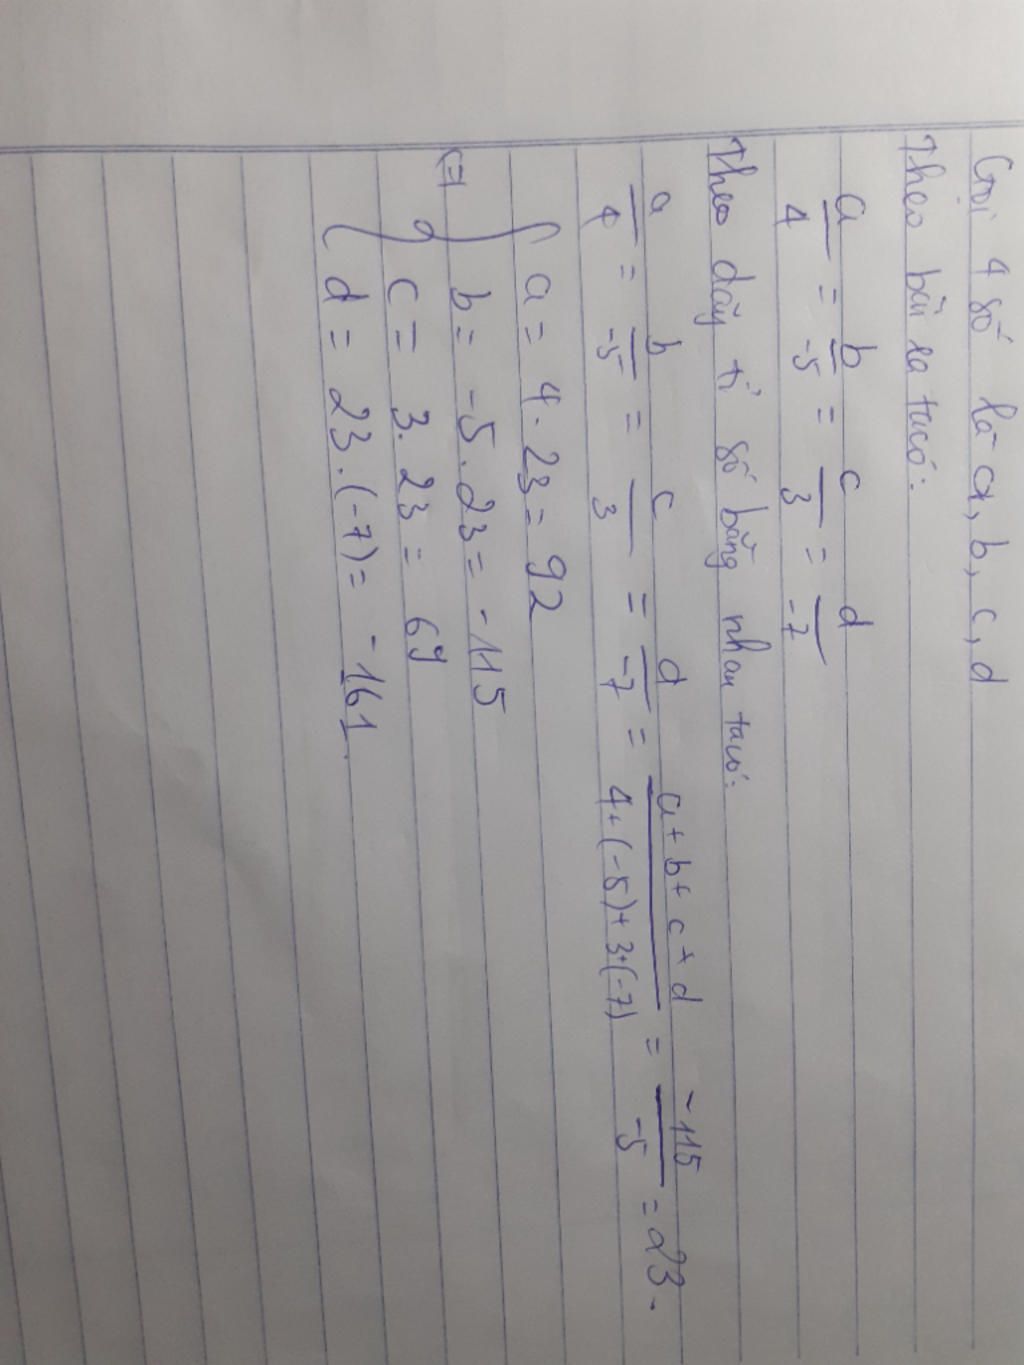 Gọi 4 số là a, b, c, d
Theo bài ra ta có:
a/4 = b/-5 = c/3 = d/-7
Theo dãy tỉ số bằng nhau ta có:
a/4 = b/-5 = c/3 = d/-7 = a+b+c+d/4+(-5)+3+(-7) = -115/-5 = 23.
a = 4.23 = 92
(=) b = -5.23 = -115
c = 3.23 = 69
d = 23.(-7) = -161.